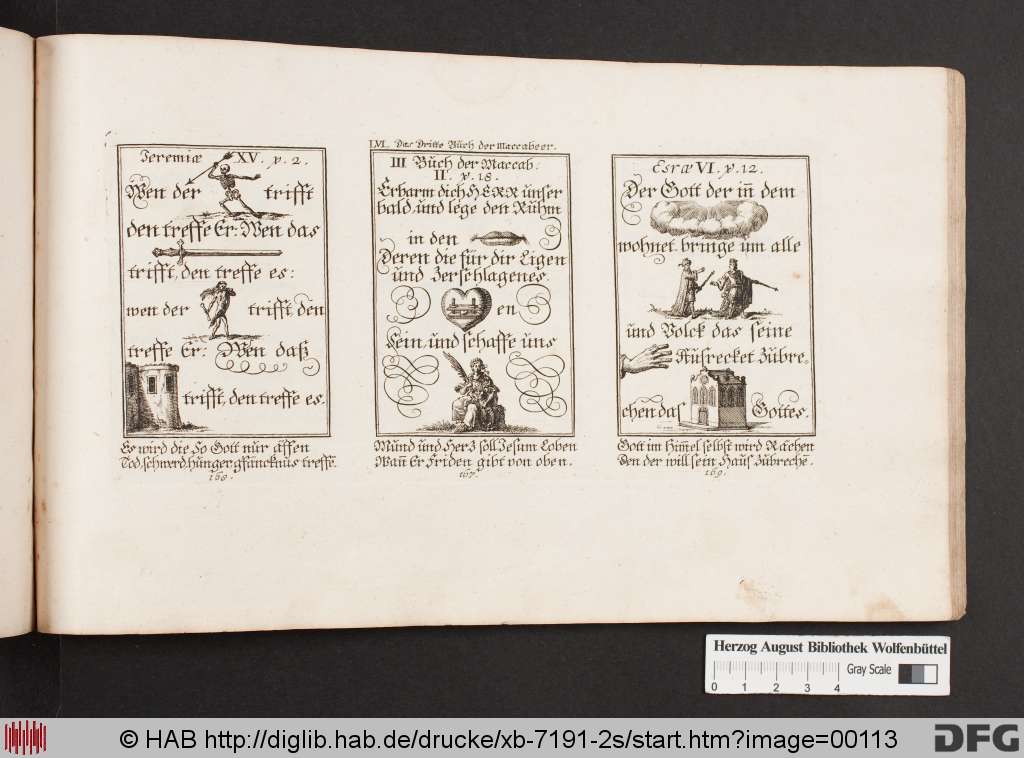 Jeremiæ XV. v. 2.
Wen der trifft
den treffe Er: Wen das
trifft, den treffe es:
wen der trifft, den
treffe Er: Wen daß
trifft, den treffe es.
Es wird die So Gott nur äffen
Tod schwerd hunger gfäncknus treffe.
168.
LVI. Das Dritte Büch der Maccabeer.
III Büch der Maccab:
II. v. 18.
Erbarm dich HERR ünser
bald, und lege den Rühm
in den
Deren die für dir Ligen
und Zerschlagenes
en
Sein, und schaffe üns
Münd ünd Herz soll Jesum Loben
Wan̄ Er Friden gibt von oben.
167.
Esræ VI. v. 12.
Der Gott der in̄ dem
wohnet, bringe üm alle
und Volck das seine
Aüsrecket Zübre-
chen das Gottes.
Gott im Him̄el selbst wird Rächen
Den der will sein Haüs Zübrechē.
169.
Herzog August Bibliothek Wolfenbüttel
Gray Scale
0 1 2 3 4
© HAB http://diglib.hab.de/drucke/xb-7191-2s/start.htm?image=00113
DFG